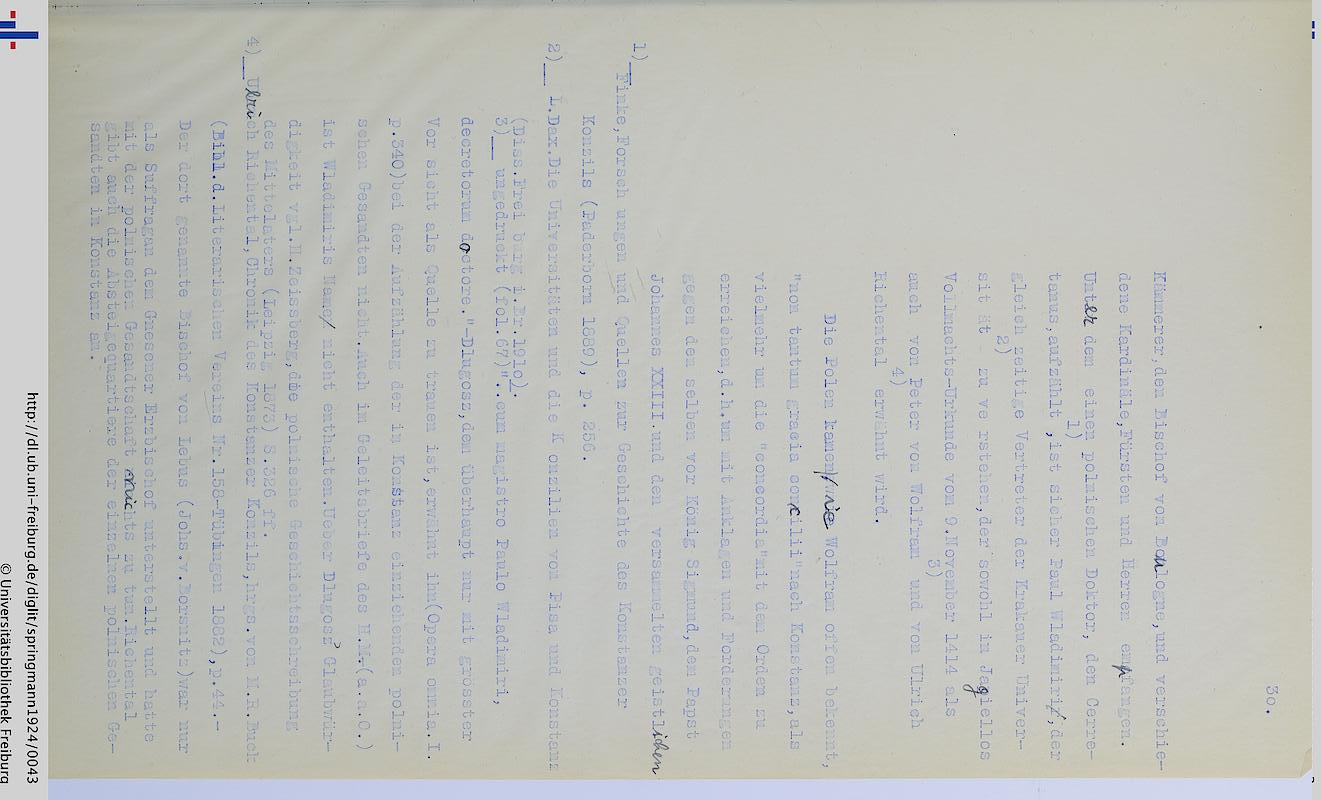 30.
Kämmerer, den Bischof von Boulogne, und verschie-
dene Kardinäle, Fürsten und Herren empfangen.
Unter dem einen polnischen Doktor, den Cerre-
1)
tanus, aufzählt , ist sicher Paul Wladimiri, der
gleich zeitige Vertreter der Krakauer Univer-
2)
sit ät zu ve rstehen, der sowohl in Jagiellos
Vollmachts-Urkunde vom 9. November 1414 als
3)
auch von Peter von Wolfram und von Ulrich
4)
Richental erwähnt wird.
Die Polen kamen, wie Wolfram offen bekennt,
"non tantum gracia concilii" nach Konstanz, als
vielmehr um die "concordia" mit dem Orden zu
erreichen, d.h. um mit Anklagen und Forderungen
gegen den selben vor König Sigmund, dem Papst
Johannes XXIII. und den versammelten geistlichen
1) Finke, Forsch ungen und Quellen zur Geschichte des Konstanzer
Konzils (Paderborn 1889), p. 256.
2) L. Dax. Die Universitäten und die K onzilien von Pisa und Konstanz
(Diss. Frei burg i. Br. 1910).
3) ungedruckt (fol. 67)".. cum magistro Paulo Wladimiri,
decretorum doctore."-Dlugosz, dem überhaupt nur mit grösster
Vor sicht als Quelle zu trauen ist, erwähnt ihn (Opera omnia. I.
p. 340) bei der Aufzählung der in Konstanz einziehenden polni-
schen Gesandten nicht. Auch im Geleitsbriefe des H.M. (a.a.O.)
ist Wladimiris Name nicht enthalten. Ueber Dlugosz' Glaubwür-
digkeit vgl. H. Zeissberg, die polnische Geschichtsschreibung
des Mittelaters (Leipzig 1873) S. 326 ff.
4) Ulrich Richental, Chronik des Konstanzer Konzils, hrgs. von M.R. Buck
(Bibl. d. Literarischen Vereins Nr. 158-Tübingen 1882), p. 44.-
Der dort genannte Bischof von Lebus (Johs. v. Borsnitz) war nur
als Suffragan dem Gnesener Erzbischof unterstellt und hatte
mit der polnischen Gesandtschaft nichts zu tun. Richental
gibt auch die Absteigequartiere der einzelnen polnischen Ge-
sandten in Konstanz an.
http://dl.ub.uni-freiburg.de/diglit/springmann1924/0043
© Universitätsbibliothek Freiburg